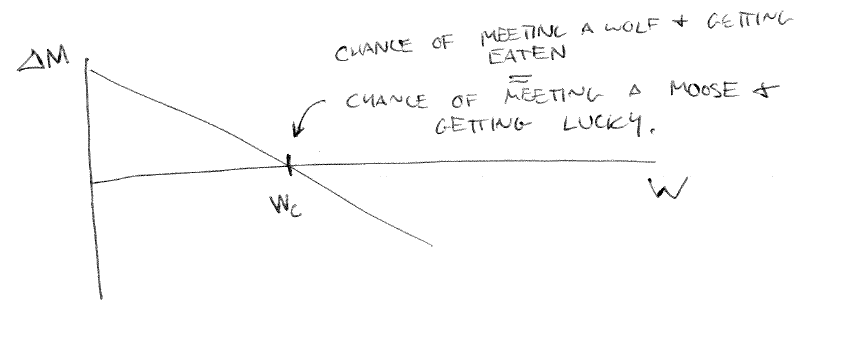 ΔM
CHANCE OF MEETING A WOLF + GETTING
EATEN
=
CHANCE OF MEETING A MOOSE +
GETTING LUCKY.
Wc
W